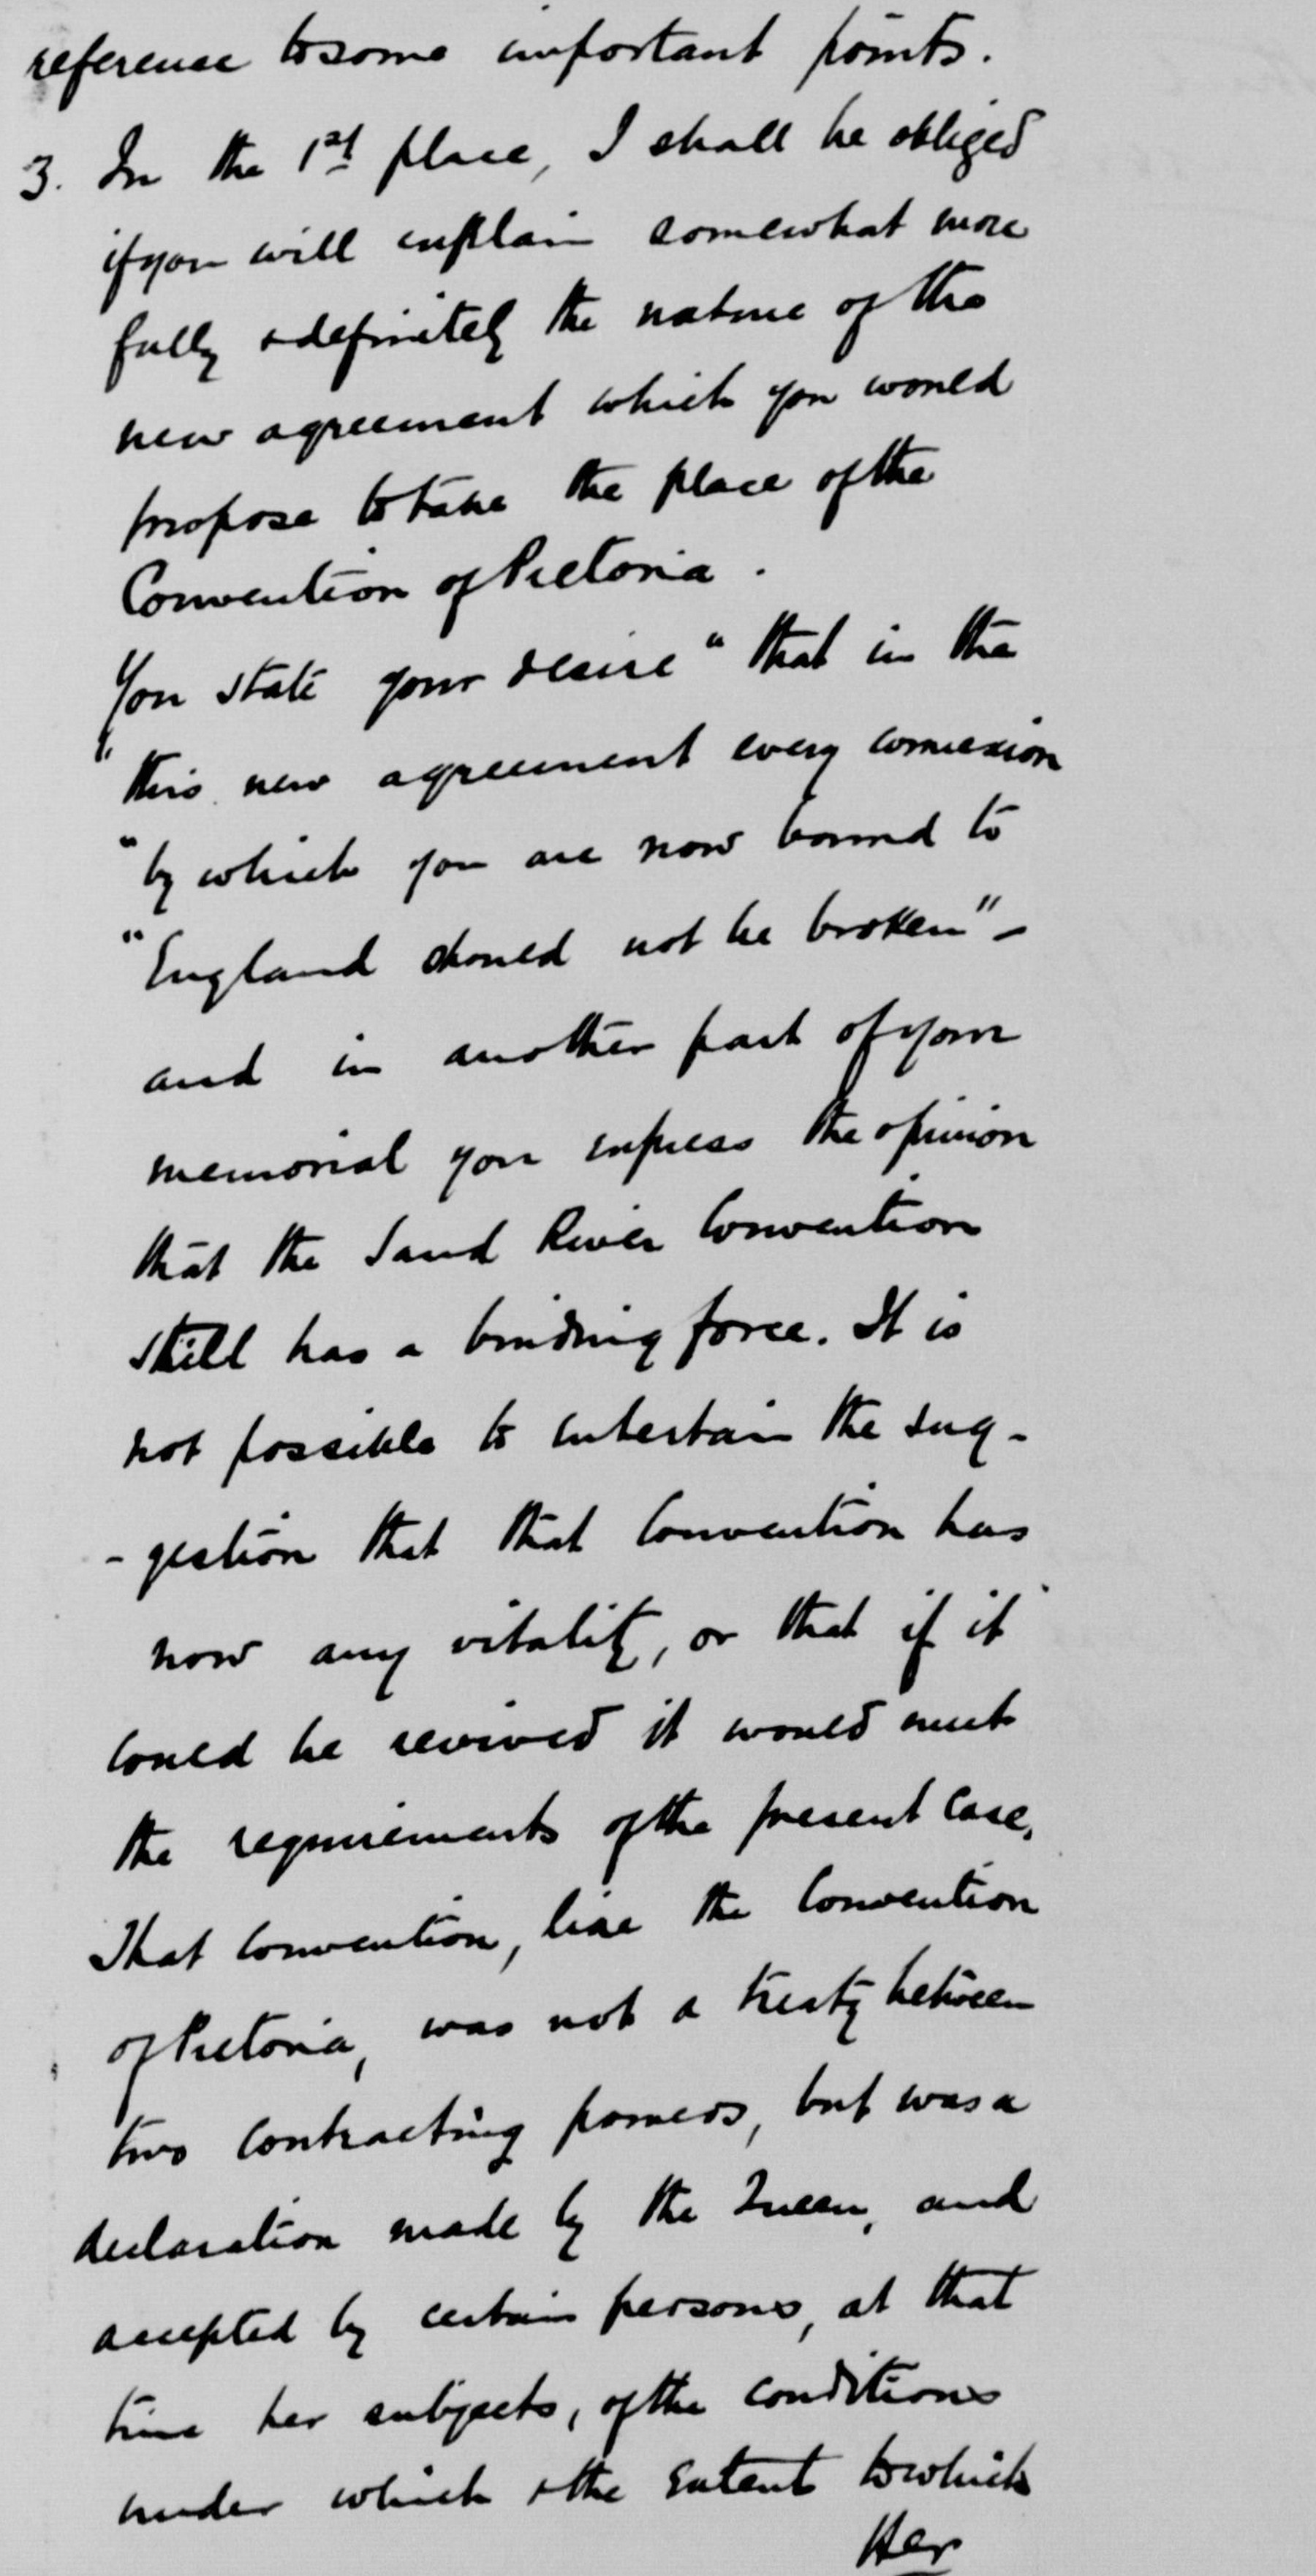 reference to some important points.
3. In the 1st place, I shall be obliged
if you will explain somewhat more
fully & definitely the nature of the
new agreement which you would
propose to take the place of the
Convention of Pretoria.
You state your desire "that in the
"this new agreement every connexion
"by which you are now bound to
"England should not be broken" -
and in another part of your
memorial you express the opinion
that the Sand River Convention
still has a binding force. It is
not possible to entertain the sug-
-gestion that that Convention has
now any vitality, or that if it
could be revived it would meet
the requirements of the present case.
That Convention, like the Convention
of Pretoria, was not a treaty between
two contracting powers, but was a
declaration made by the Queen, and
accepted by certain persons, at that
time her subjects, of the conditions
under which & the extent to which
Her